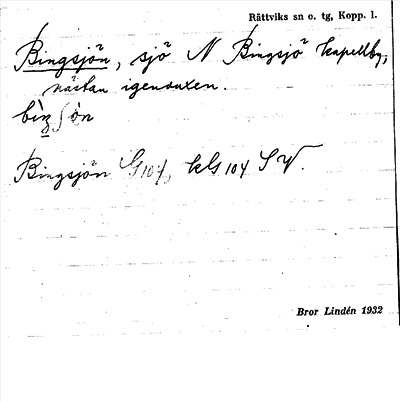 Rättviks sn o. tg, Kopp. l.
Bingsjön, sjö N Bingsjö kapellby,
nästan igenvuxen.
Bingsjön G104, kls 104 SV.
Bror Lindén 1932